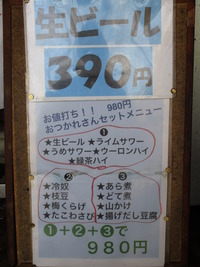 生ビール
390円
お値打ち！！ 980円
おつかれさんセットメニュー
①
★生ビール★ライムサワー
★うめサワー★ウーロンハイ
★緑茶ハイ
②
★冷奴
★枝豆
★梅くらげ
★たこわさび
③
★あら煮
★どて煮
★山かけ
★揚げだし豆腐
①+②+③で
980円